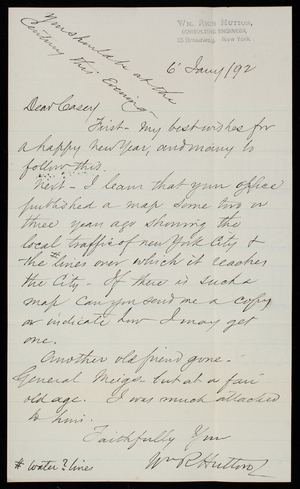 WM. RICH HUTTON,
CONSULTING ENGINEER,
15 Broadway, New York
You should be at the
Century this Evening
6 Jany/92
Dear Casey
First - My best wishes for
a happy new Year, and many to
follow this.
Next - I learn that your office
published a map some two or
three years ago showing the
local traffic of new York City &
the # lines over which it reaches
the City - If there is such a
map can you send me a copy
or indicate how I may get
one.
Another old friend gone -
General Meigs - but at a fair
old age. I was much attached
to him.
Faithfully Yrs
Wm R Hutton
# water? lines